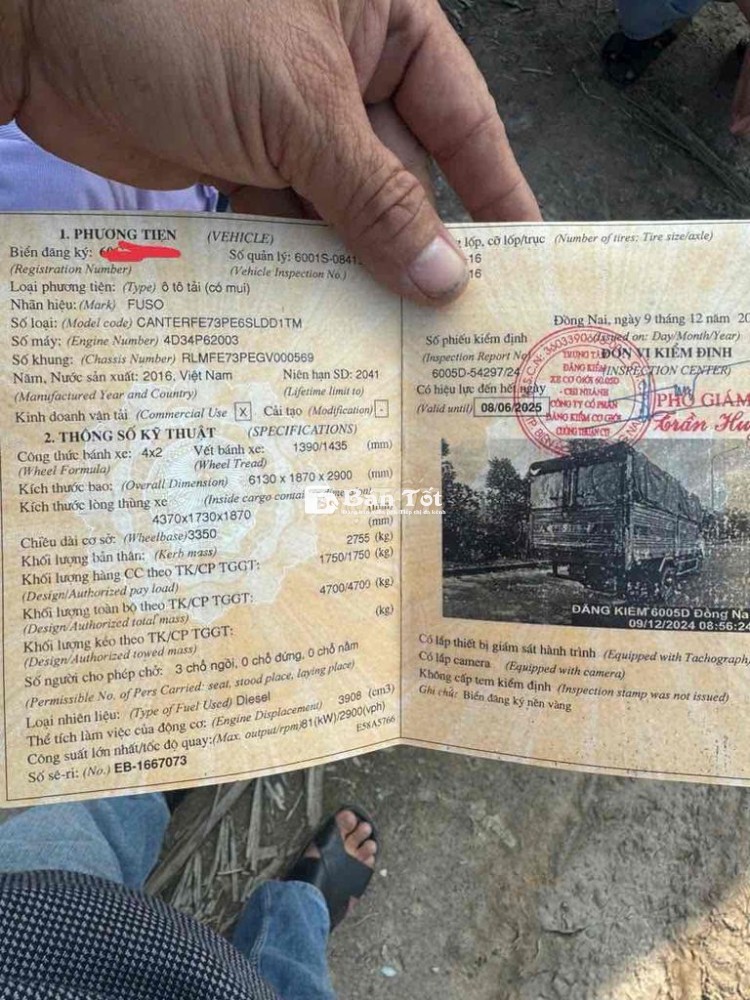 1. PHƯƠNG TIỆN (VEHICLE)
Biển đăng ký: 60
(Registration Number)
Số quản lý: 6001S-0841
(Vehicle Inspection No.)
Loại phương tiện: (Type) Ô tô tải (có mui)
Nhãn hiệu: (Mark) FUSO
Số loại: (Model code) CANTERFE73PE6SLDD1TM
Số máy: (Engine Number) 4D34P62003
Số khung: (Chassis Number) RLMFE73PEGV000569
Năm, Nước sản xuất: 2016, Việt Nam
(Manufactured Year and Country)
Niên hạn SD: 2041
(Lifetime limit to)
Kinh doanh vận tải (Commercial Use) X Cải tạo (Modification) -
2. THÔNG SỐ KỸ THUẬT (SPECIFICATIONS)
Công thức bánh xe: 4x2 Vết bánh xe: 1390/1435 (mm)
(Wheel Formula) (Wheel Tread)
Kích thước bao: (Overall Dimension) 6130 x 1870 x 2900 (mm)
Kích thước lòng thùng xe (Inside cargo
4370x1730x1870 (mm)
Chiều dài cơ sở: (Wheelbase) 3350 (mm)
Khối lượng bản thân: (Kerb mass) 2755 (kg)
Khối lượng hàng CC theo TK/CP TGGT: 1750/1750 (kg)
(Design/Authorized pay load)
Khối lượng toàn bộ theo TK/CP TGGT: 4700/4700 (kg)
(Design/Authorized total mass)
Khối lượng kéo theo TK/CP TGGT: (kg)
(Design/Authorized towed mass)
Số người cho phép chở: 3 chỗ ngồi, 0 chỗ đứng, 0 chỗ nằm
(Permissible No. of Pers Carried: seat, stood place, laying place)
Loại nhiên liệu: (Type of Fuel Used) Diesel
Thể tích làm việc của động cơ: (Engine Displacement) 3908 (cm3)
Công suất lớn nhất/tốc độ quay: (Max. output/rpm) 81(kW)/2900(vph)
E58A5766
Số sê-ri: (No.) EB-1667073
lốp, cỡ lốp/trục (Number of tires: Tire size/axle)
-16
16
Đồng Nai, ngày 9 tháng 12 năm 20
(Issued on: Day/Month/Year)
Số phiếu kiểm định
(Inspection Report No)
6005D-54297/24
ĐƠN VỊ KIỂM ĐỊNH
(INSPECTION CENTER)
Có hiệu lực đến hết ngày
(Valid until) 08/06/2025
TRUNG TÂ
ĐĂNG KIỂM
XE CƠ GIỚI 60.05D
- CHI NHÁNH
CÔNG TY CỔ PHẦN
ĐĂNG KIỂM CƠ GIỚI
CƯỜNG THUẬN CTI
PHÓ GIÁM
Trần Hu
Bán Tốt
ĐĂNG KIỂM 6005D Đồng Na
09/12/2024 08:56:24
Có lắp thiết bị giám sát hành trình (Equipped with Tachograph
Có lắp camera (Equipped with camera)
Không cấp tem kiểm định (Inspection stamp was not issued)
Ghi chú: Biển đăng ký nền vàng